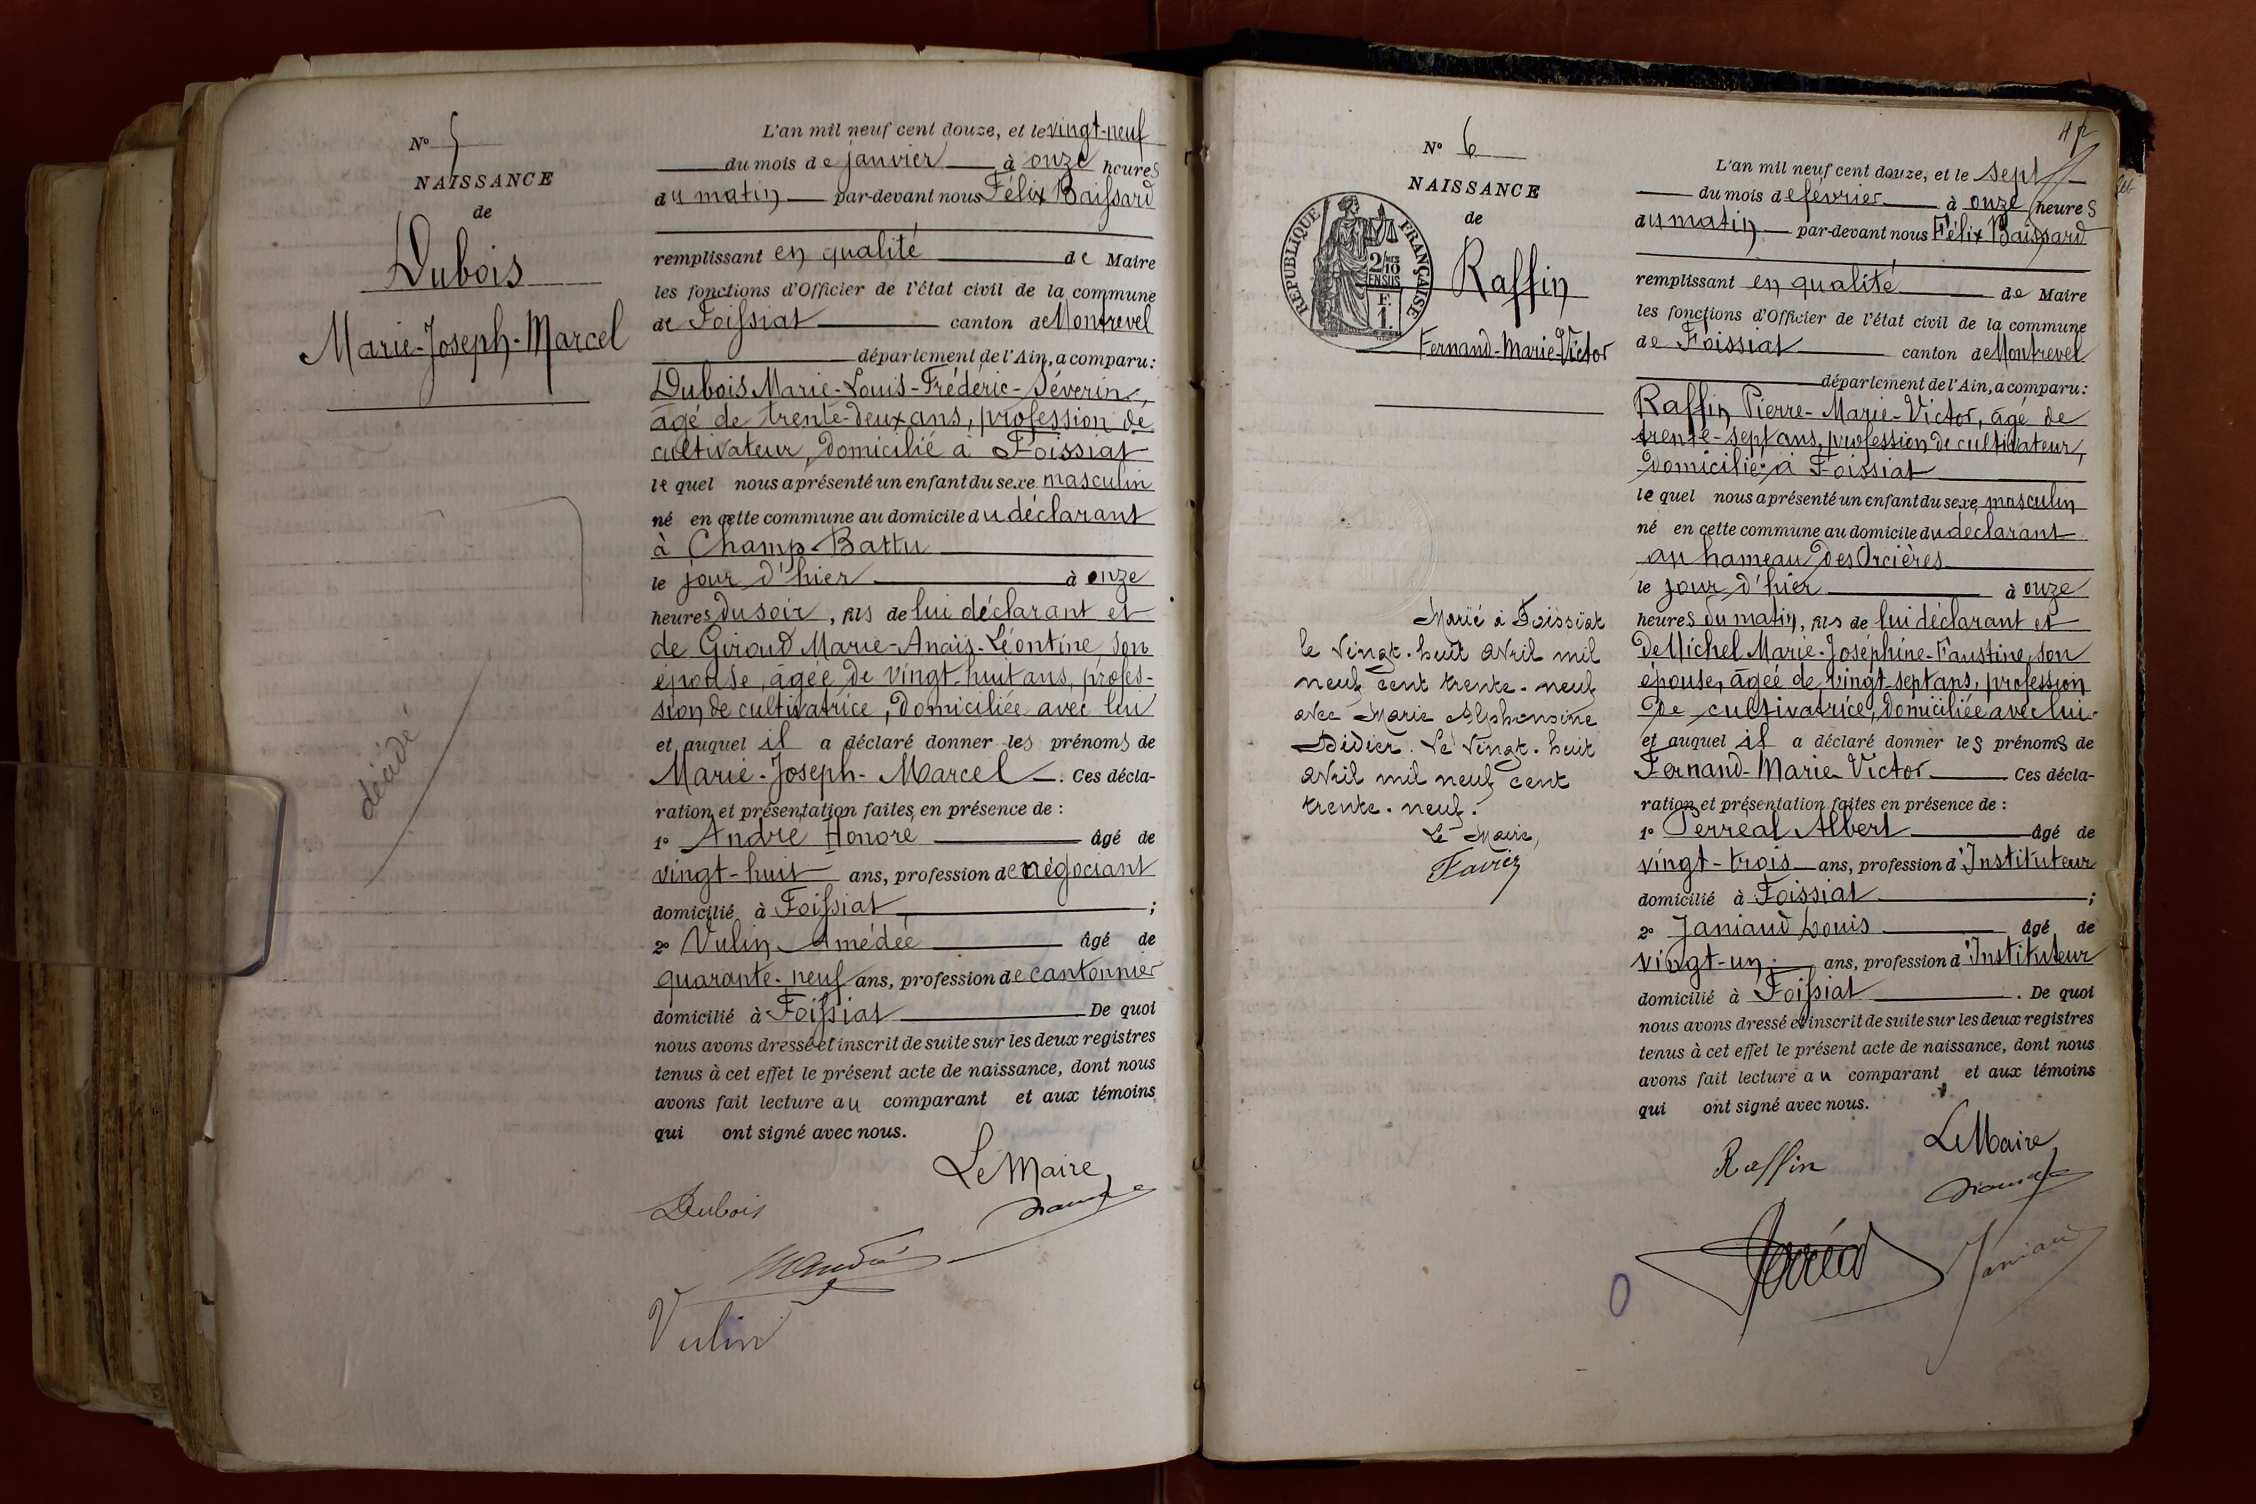 N° 5
NAISSANCE
de
Dubois
Marie-Joseph-Marcel
décédé
L'an mil neuf cent douze, et le vingt-neuf
du mois de janvier à onze heures
du matin par-devant nous Félix Baissard
remplissant en qualité de Maire
les fonctions d'Officier de l'état civil de la commune
de Foissiat canton de Montrevel
département de l'Ain, a comparu:
Dubois Marie-Louis-Frédéric-Séverin,
âgé de trente-deux ans, profession de
cultivateur, domicilié à Foissiat
lequel nous a présenté un enfant du sexe masculin
né en cette commune au domicile du déclarant
à Champ-Battu
le jour d'hier à onze
heures du soir, fils de lui déclarant et
de Giroud Marie-Anaïs-Léontine son
épouse, âgée de vingt-huit ans, profes-
sion de cultivatrice, domiciliée avec lui
et auquel il a déclaré donner les prénoms de
Marie-Joseph-Marcel. Ces décla-
ration et présentation faites en présence de :
1° André Honoré âgé de
vingt-huit ans, profession de négociant
domicilié à Foissiat ;
2° Vulin Amédée âgé de
quarante-neuf ans, profession de cantonnier
domicilié à Foissiat De quoi
nous avons dressé et inscrit de suite sur les deux registres
tenus à cet effet le présent acte de naissance, dont nous
avons fait lecture au comparant et aux témoins
qui ont signé avec nous.
Le Maire
Dubois
Vulin
N° 6
NAISSANCE
de
RÉPUBLIQUE FRANÇAISE
2/10 EN SUS
F.
1.
Raffin
Fernand-Marie-Victor
Marié à Foissiat
le vingt-huit avril mil
neuf cent trente-neuf
avec Marie Alphonsine
Didier. Le vingt-huit
avril mil neuf cent
trente-neuf.
Le Maire,
Favier
L'an mil neuf cent douze, et le sept
du mois de février à onze heures
du matin par-devant nous Félix Baissard
remplissant en qualité de Maire
les fonctions d'Officier de l'état civil de la commune
de Foissiat canton de Montrevel
département de l'Ain, a comparu:
Raffin Pierre-Marie-Victor, âgé de
trente-sept ans, profession de cultivateur,
domicilié à Foissiat
lequel nous a présenté un enfant du sexe masculin
né en cette commune au domicile du déclarant
au hameau des Orcières
le jour d'hier à onze
heures du matin, fils de lui déclarant et
de Michel Marie-Joséphine-Faustine, son
épouse, âgée de vingt-sept ans, profession
de cultivatrice, domiciliée avec lui.
et auquel il a déclaré donner les prénoms de
Fernand-Marie Victor Ces décla-
ration et présentation faites en présence de :
1° Perréal Albert âgé de
vingt-trois ans, profession d'Instituteur
domicilié à Foissiat ;
2° Janiaud Louis âgé de
vingt-un ans, profession d'Instituteur
domicilié à Foissiat . De quoi
nous avons dressé et inscrit de suite sur les deux registres
tenus à cet effet le présent acte de naissance, dont nous
avons fait lecture au comparant et aux témoins
qui ont signé avec nous.
Le Maire
Raffin
Perréal
Janiaud